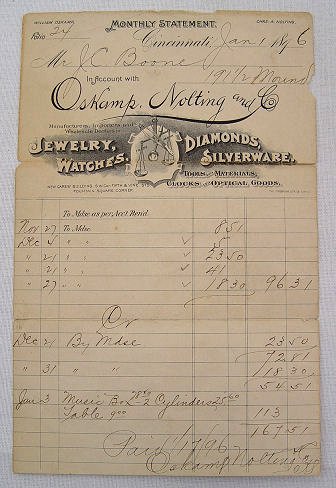 WILLIAM OSKAMP. MONTHLY STATEMENT. CHAS. A. NOLTING.
Folio 24 Cincinnati, Jan 1 1896
Mr J C Boone
In Account with 191 1/2 Mound
Oskamp, Nolting and Co
Manufacturers, Importers and
Wholesale Dealers in
JEWELRY, DIAMONDS,
WATCHES, SILVERWARE,
TOOLS and MATERIALS,
CLOCKS and OPTICAL GOODS.
NEW CAREW BUILDING, S.W. Cor. FIFTH & VINE STS.
FOUNTAIN SQUARE CORNER.
To Mdse as per Acct. Rend.
Nov 27 To Mdse 851
Dec 4 " " 5
" 21 " " 2350
" 21 " " 41
" 27 " " 1830 9631
Cr
Dec 21 By Mdse 2350
7281
" 31 " " 1830
5451
Jan 3 Music Box 2 Cylinders
Table 9.00 113
16751
Paid 1/7/96
Oskamp Nolting &